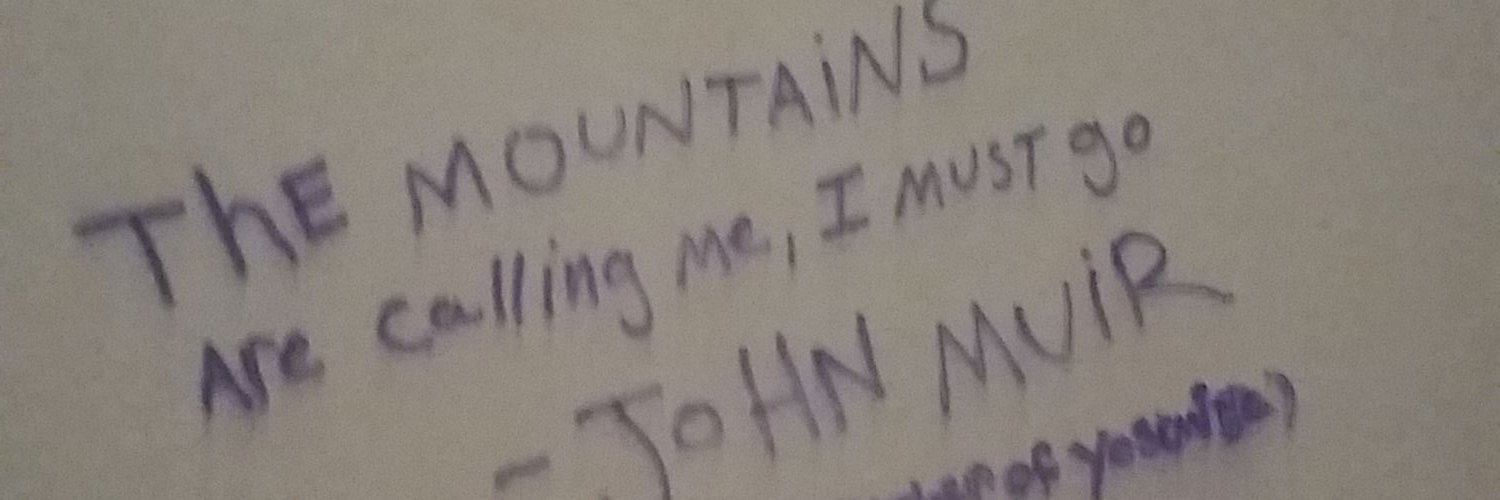 ThE MOUNTAiNS
Are calling Me, I MUST go
- JOHN MUiR
of